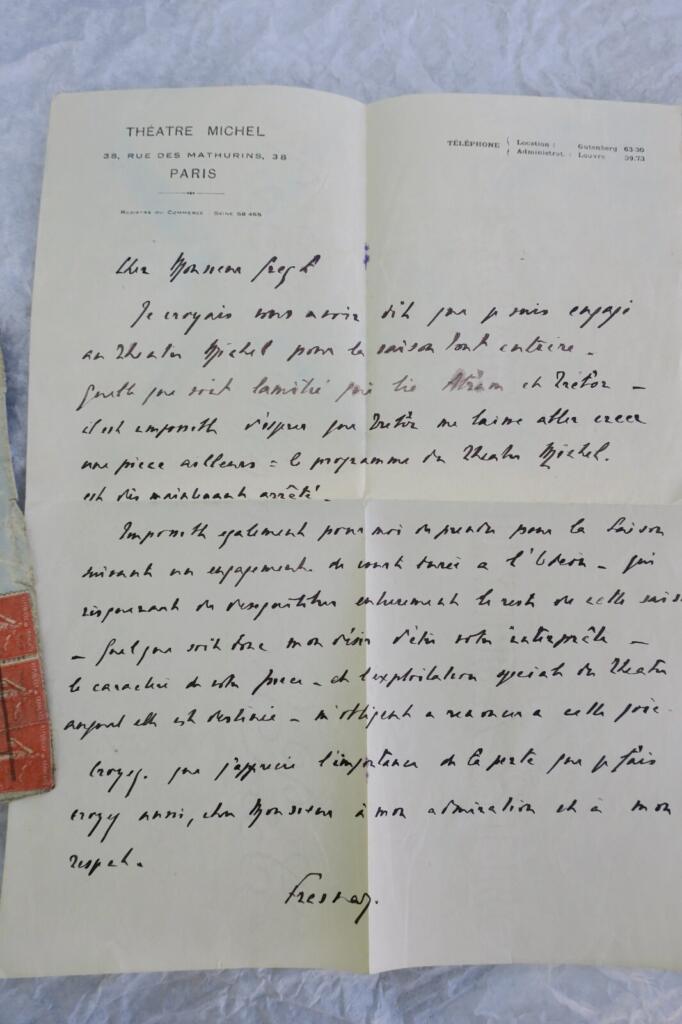 THÉATRE MICHEL
38, RUE DES MATHURINS, 38
PARIS
REGISTRE DU COMMERCE : SEINE 58.455
TÉLÉPHONE { Location : Gutenberg 63-30
Administrat. : Louvre 39.73
Cher Monsieur Gregh
Je croyais vous avoir dit que je suis engagé
au Theatre Michel pour la saison tout entière -
Quelle que soit l'amitié qui lie et Trébor -
il est impossible d'espérer que Trébor me laisse aller créer
une piece ailleurs = le programme du Theatre Michel.
est dès maintenant arrêté -
Impossible egalement pour moi de prendre pour la saison
suivante un engagement de courte durée a l'Odéon - qui
risquerait de desequilibrer entierement le reste de cette saison
- Quel que soit donc mon désir d'être votre interprète -
le caractère de votre piece - et l'exploitation speciale du Theatre
auquel elle est destinée - m'obligent a renoncer a cette joie -
Croyez que j'apprécie l'importance de la perte que je fais
croyez aussi, cher Monsieur à mon admiration et à mon
respect.
Fresnay.